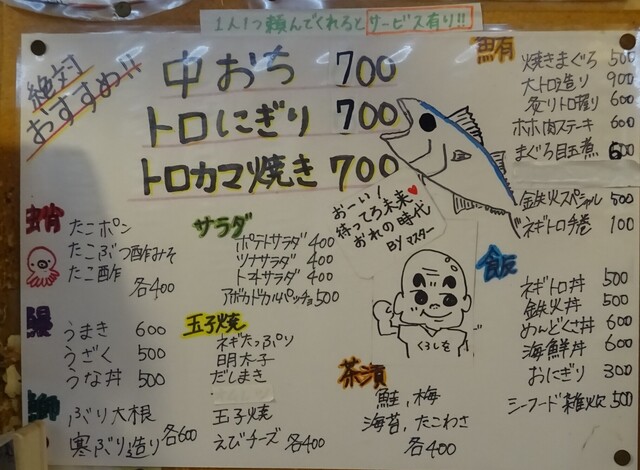 1人1つ頼んでくれるとサービス有り!!
絶対おすすめ!!
中おち 700
トロにぎり 700
トロカマ焼き 700
鮪
焼きまぐろ 500
大トロ造り 900
炙りトロ握り 600
ホホ肉ステーキ 600
まぐろ目玉煮 600
鉄火スペシャル 500
ネギトロ手巻 100
おーい!
待ってろ未来♥
おれの時代
BY マスター
くろしを
蛸
たこポン
たこぶつ酢みそ
たこ酢
各400
サラダ
ポテトサラダ 400
ツナサラダ 400
トマトサラダ 400
アボカドカルパッチョ 500
飯
ネギトロ丼 500
鉄火丼 500
めんどくさ丼 600
海鮮丼 600
おにぎり 300
シーフード雑炊 500
鰻
うまき 600
うざく 500
うな丼 500
玉子焼
ネギたっぷり
明太子
だしまき
玉子焼
えびチーズ 各400
鰤
ぶり大根
寒ぶり造り 各600
茶漬
鮭,梅
海苔,たこわさ
各400